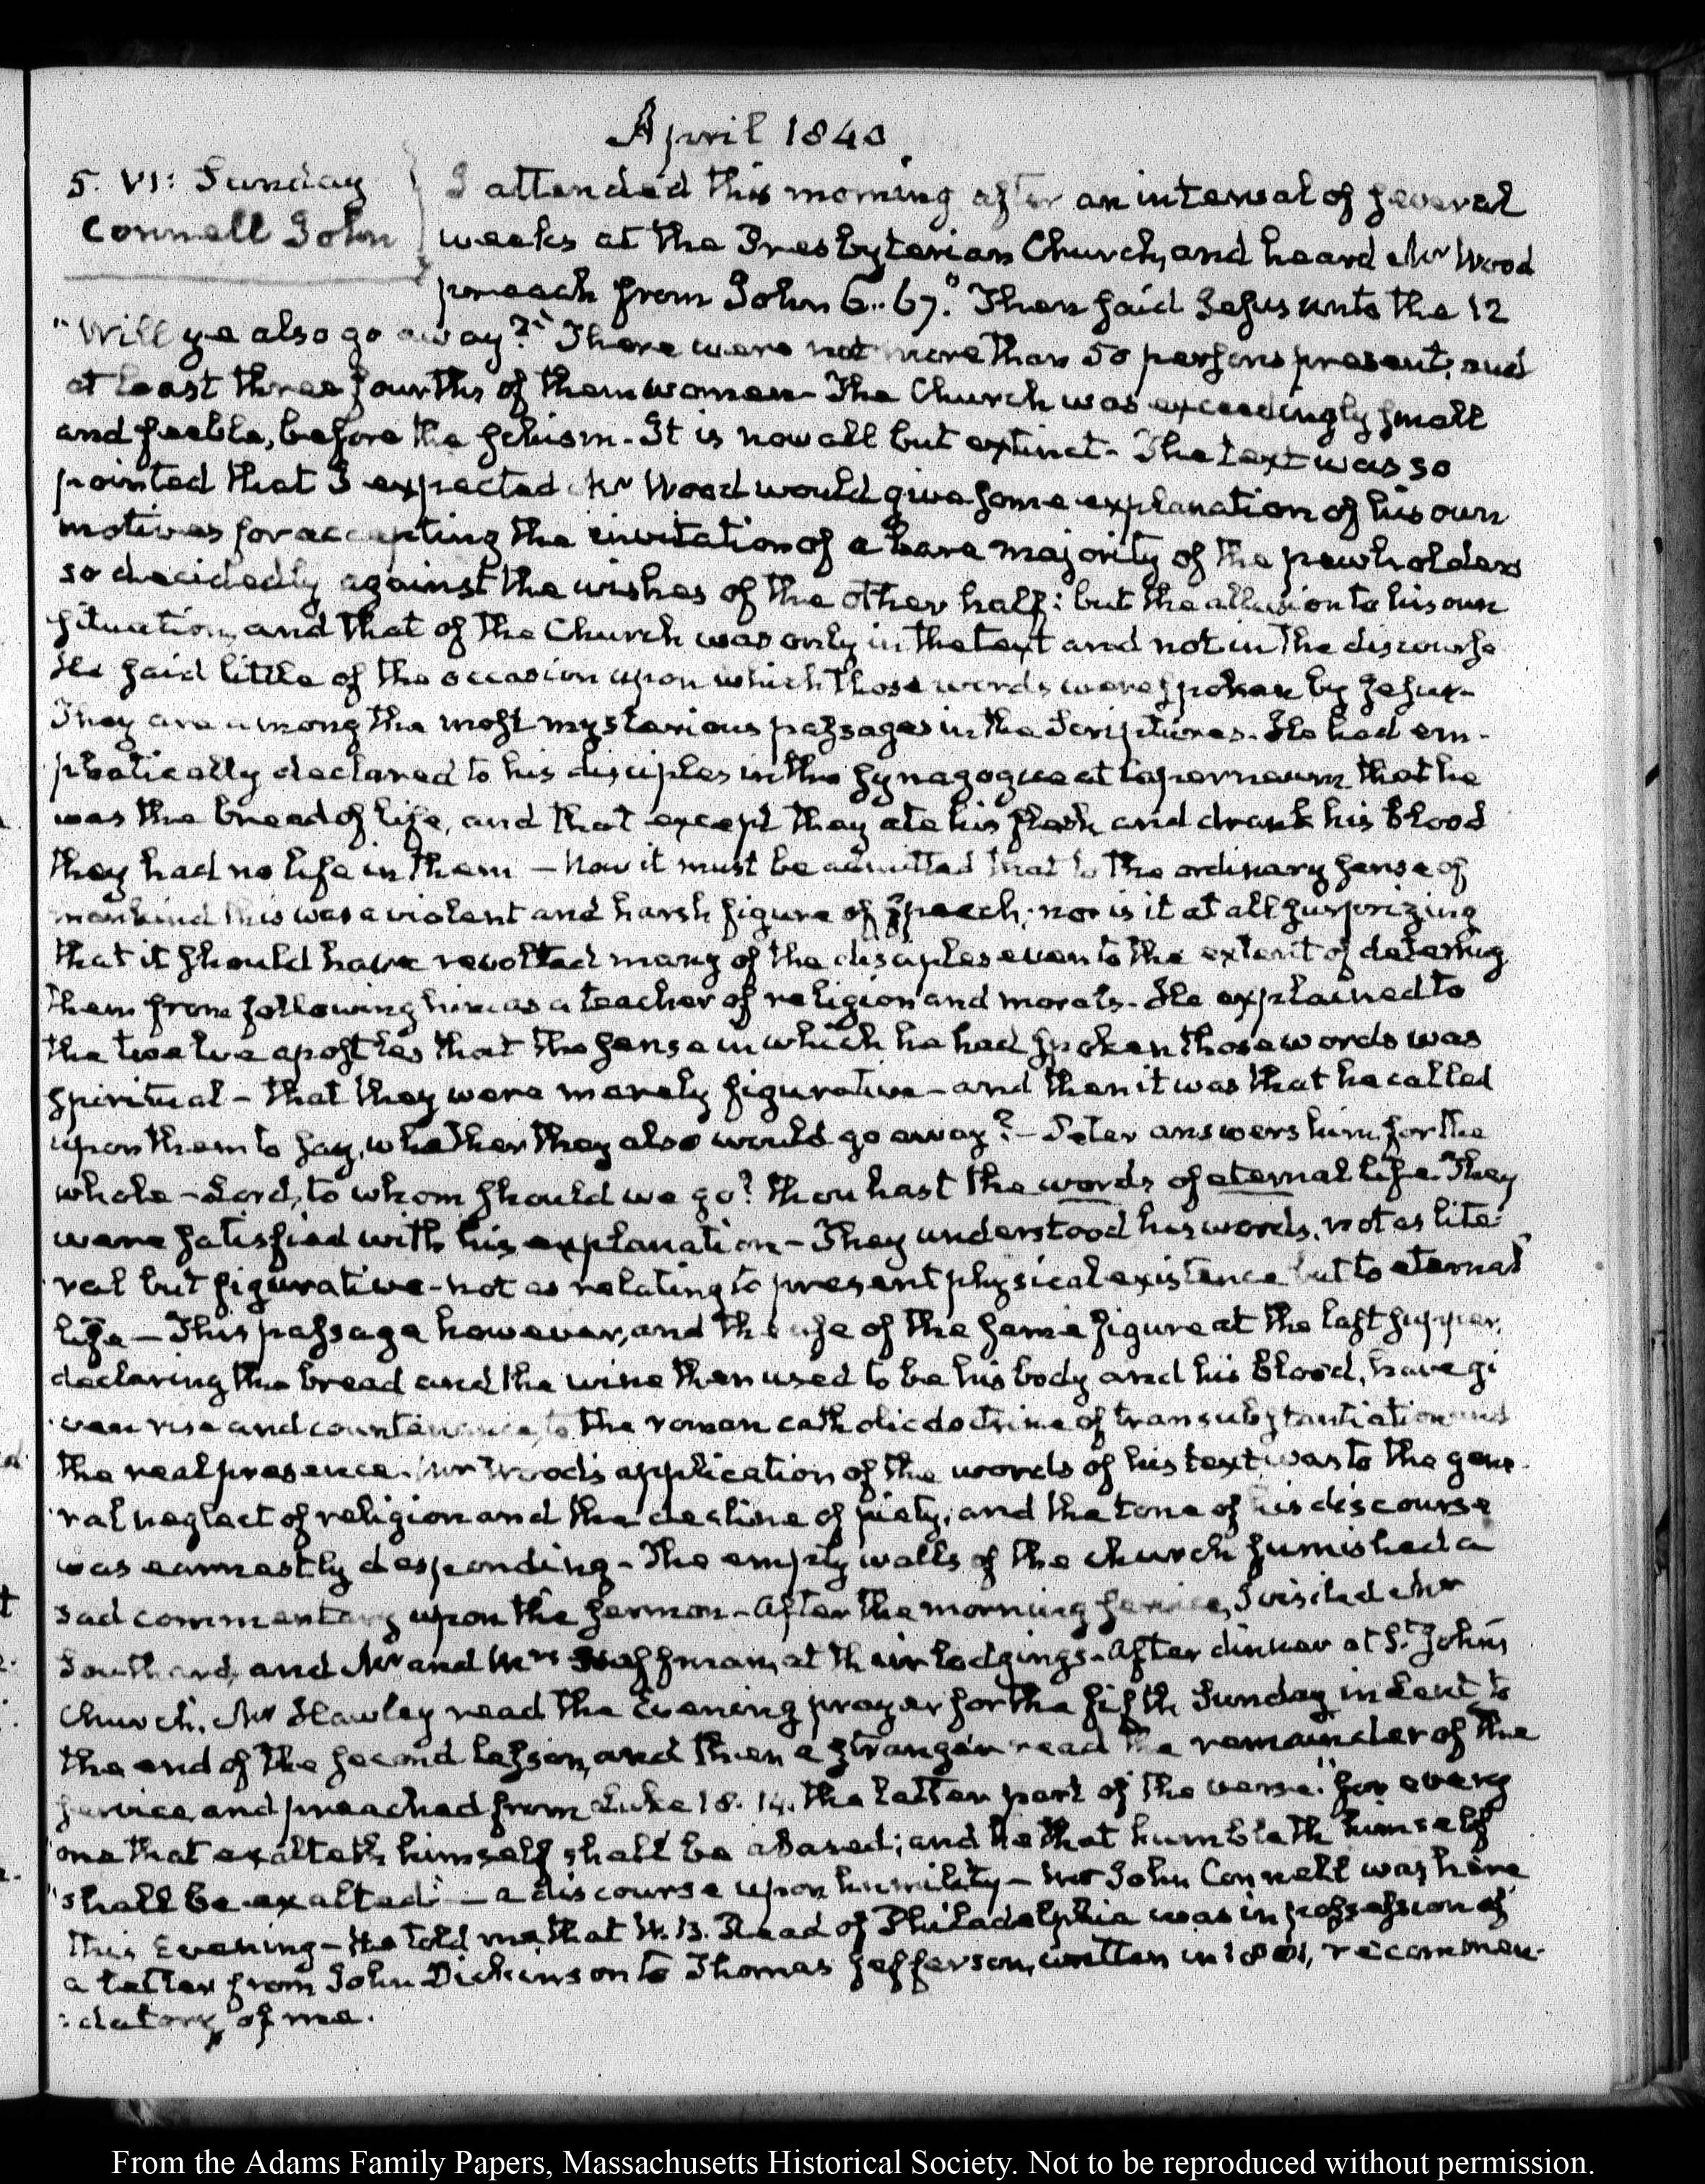 April 1840.
5. VI: Sunday
Connell John
I attended this morning after an interval of several
weeks at the Presbyterian Church, and heard Mr Wood
preach from John 6..67. "Then said Jesus unto the 12
"Will ye also go away?" There were not more than 50 persons present, and
at least three fourths of them women. The Church was exceedingly small
and feeble, before the schism. It is now all but extinct. The text was so
pointed that I expected Mr Wood would give some explanation of his own
motives for accepting the invitation of a bare majority of the pewholders
so decidedly against the wishes of the other half: but the allusion to his own
situation, and that of the Church was only in the text and not in the discourse
He said little of the occasion upon which those words were spoken by Jesus.
They are among the most mysterious passages in the Scriptures. He had em-
phatically declared to his disciples in the synagogue at Capernaum that he
was the bread of life, and that except they ate his flesh and drank his blood
they had no life in them — Now it must be admitted that to the ordinary sense of
mankind this was a violent and harsh figure of speech; nor is it at all surprizing
that it should have revolted many of the disciples even to the extent of deterring
them from following him as a teacher of religion and morals. He explained to
the twelve apostles that the sense in which he had spoken those words was
spiritual - that they were merely figurative - and then it was that he called
upon them to say, whether they also would go away? - Peter answers him for the
whole - Lord, to whom should we go? thou hast the words of eternal life. They
were satisfied with his explanation - They understood his words, not as lite:
ral but figurative - not as relating to present physical existence but to eternal
life — This passage however, and the use of the same figure at the last supper,
declaring the bread and the wine then used to be his body and his blood, have gi
ven rise and countenance, to the roman catholic doctrine of transubstantiation and
the real presence. Mr Wood's application of the words of his text was to the gene-
ral neglect of religion and the decline of piety, and the tone of his discourse
was earnestly desponding - The empty walls of the church furnished a
sad commentary upon the sermon - After the morning service, I visited Mr
Southard, and Mr and Mrs Hoffman, at their lodgings. After dinner at St. John's
Church, Mr Hawley read the Evening prayer for the fifth Sunday in Lent, to
the end of the second lesson, and then a stranger read the remainder of the
service and preached from Luke 18. 14. the latter part of the verse. "for every
one that exalteth himself shall be abased; and he that humbleth himself
"shall be exalted" — a discourse upon humility - Mr John Connell was here
this Evening - He told me that W. B. Read of Philadelphia was in possession of
a letter from John Dickinson to Thomas Jefferson, written in 1801, recommen-
:datory of me.
From the Adams Family Papers, Massachusetts Historical Society. Not to be reproduced without permission.